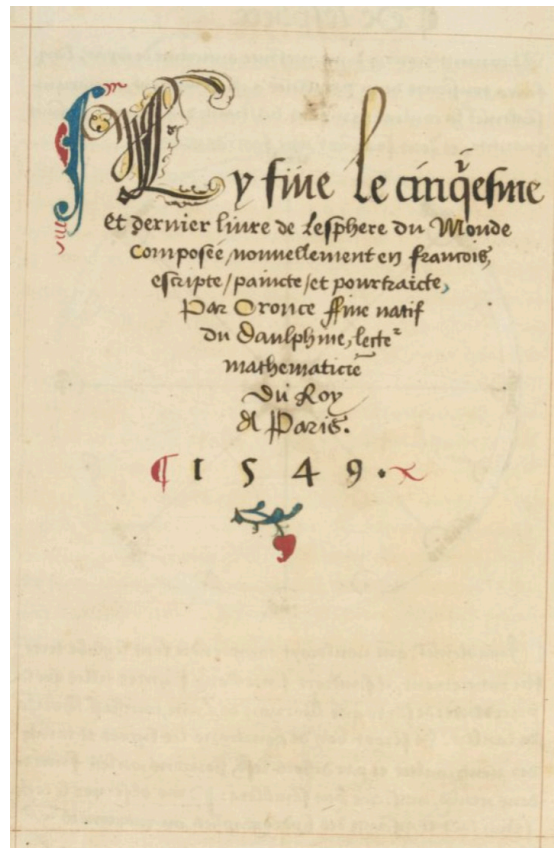 Cy fine le cinq̃esme
et dernier liure de Lesphere du Monde
Composée, nouuellement en francois,
escripte/paincte/et pourtraicte,
Par Oronce ffine natif
du Daulphine, lecteʳ
mathematiciẽ
Du Roy
A Paris.
¶ 1 5 4 9 .